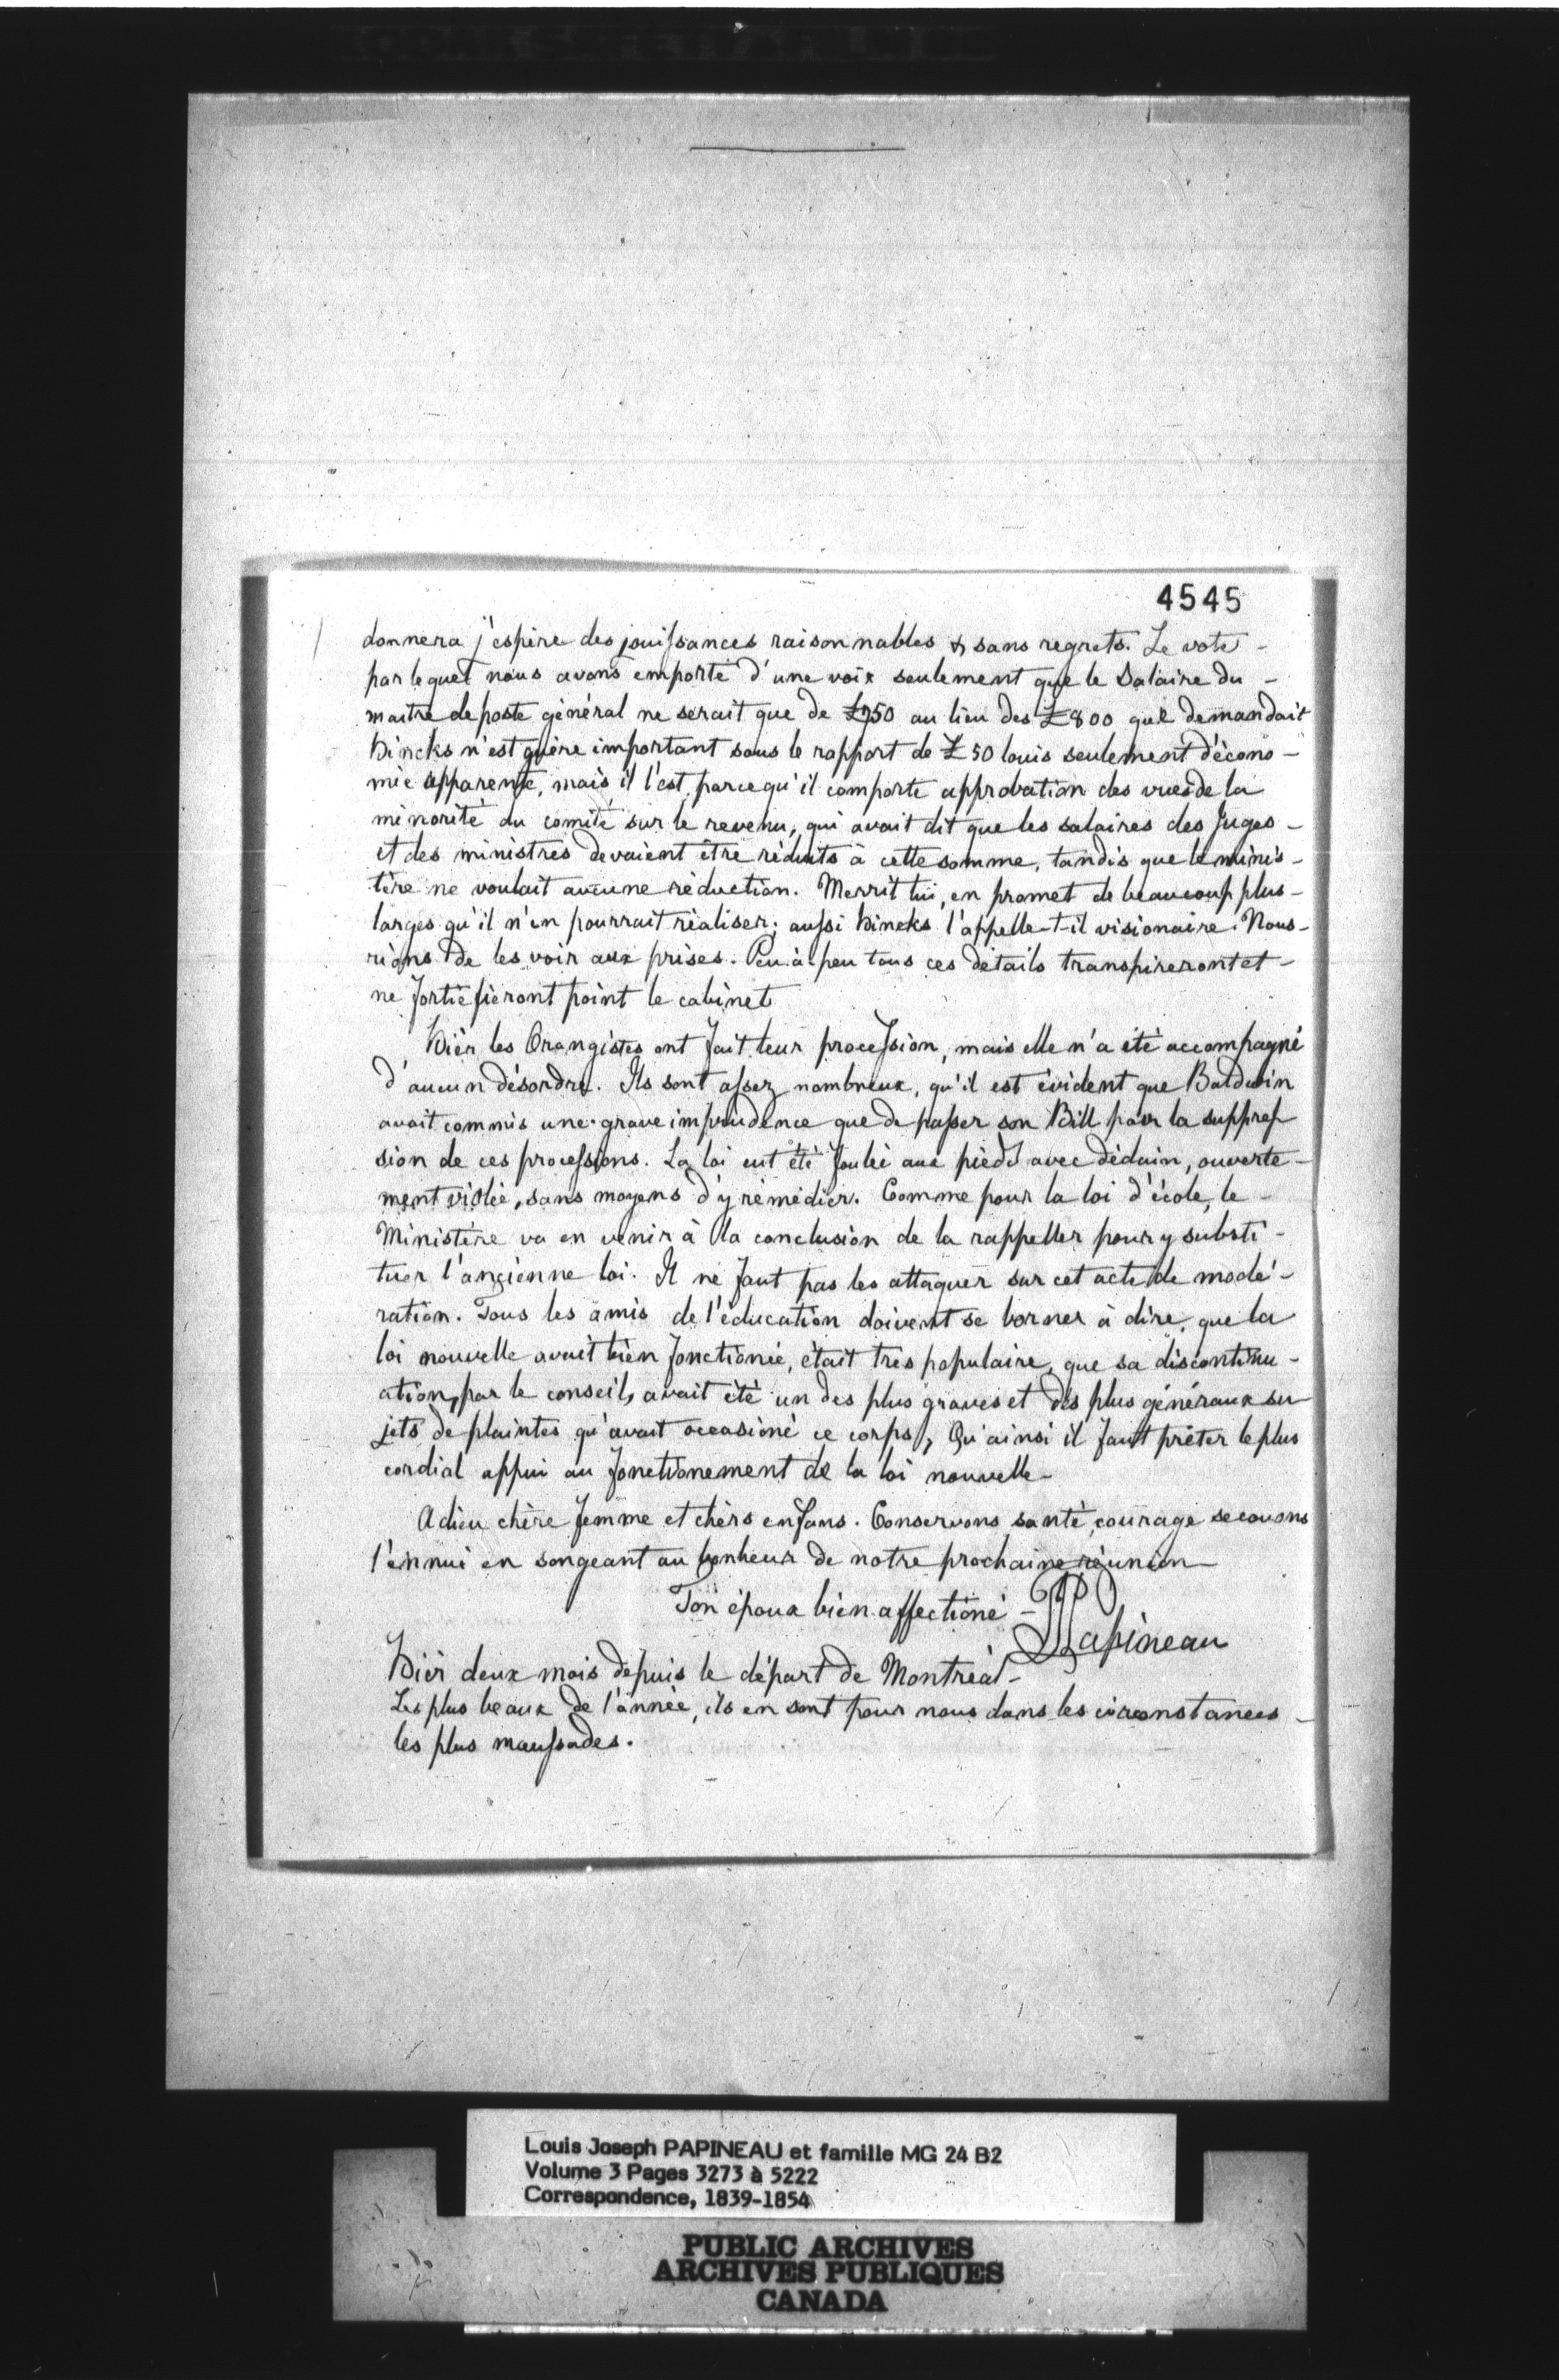 4545
donnera j'espère des jouissances raisonnables & sans regrets. Le vote -
par lequel nous avons emporté d'une voix seulement que le Salaire du -
maitre de poste général ne serait que de £750 au lieu des £800 que demandait
Hincks n'est guère important sous le rapport de £50 louis seulement d'écono -
mie apparente, mais il l'est, parcequ'il comporte approbation des vues de la
minorité du comité sur le revenu, qui avait dit que les salaires des Juges -
et des ministres devaient être réduits à cette somme, tandis que le minis -
tère ne voulait aucune réduction. Merrit lui, en promet de beaucoup plus -
larges qu'il n'en pourrait réaliser; aussi Hincks l'appelle-t-il visionaire. Nous -
rions de les voir aux prises. Peu à peu tous ces détails transpireront et -
ne fortifieront point le cabinet
Hier les Orangistes ont fait leur procession, mais elle n'a été accompagné
d'aucun désordre. Ils sont assez nombreux, qu'il est évident que Baldwin
avait commis une grave imprudence que de passer son Bill pour la suppres
sion de ces processions. La loi eut été foulée aux pieds avec dédain, ouverte -
ment violée, sans moyens d'y rémédier. Comme pour la loi d'école, le -
Ministère va en venir à la conclusion de la rappeller pour y substi -
tuer l'ancienne loi. Il ne faut pas les attaquer sur cet acte de modé -
ration. Tous les amis de l'éducation doivent se borner à dire, que la
loi nouvelle avait bien fonctionée, était très populaire, que sa discontinu -
ation, par le conseil, avait été un des plus graves et des plus généraux su
jets de plaintes qu'avait occasioné ce corps, Qu'ainsi il faut prêter le plus
cordial appui au fonctionement de la loi nouvelle -
Adieu chère femme et chèrs enfans. Conservons santé, courage secouons
l'ennui en songeant au bonheur de notre prochaine réunion -
Ton époux bien affectioné -
LJ Papineau
Hier deux mois depuis le départ de Montréal -
Les plus beaux de l'année, ils en sont pour nous dans les circonstances -
les plus maussades.
Louis Joseph PAPINEAU et famille MG 24 B2
Volume 3 Pages 3273 à 5222
Correspondence, 1839-1854
PUBLIC ARCHIVES
ARCHIVES PUBLIQUES
CANADA